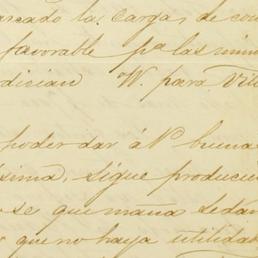 arcado la, cargas, de con
favorable pa. las minu
dician V. para Vill
poder dar á V. buena
ísima, sigue producie
se que maña se dan
que no haya utilidad